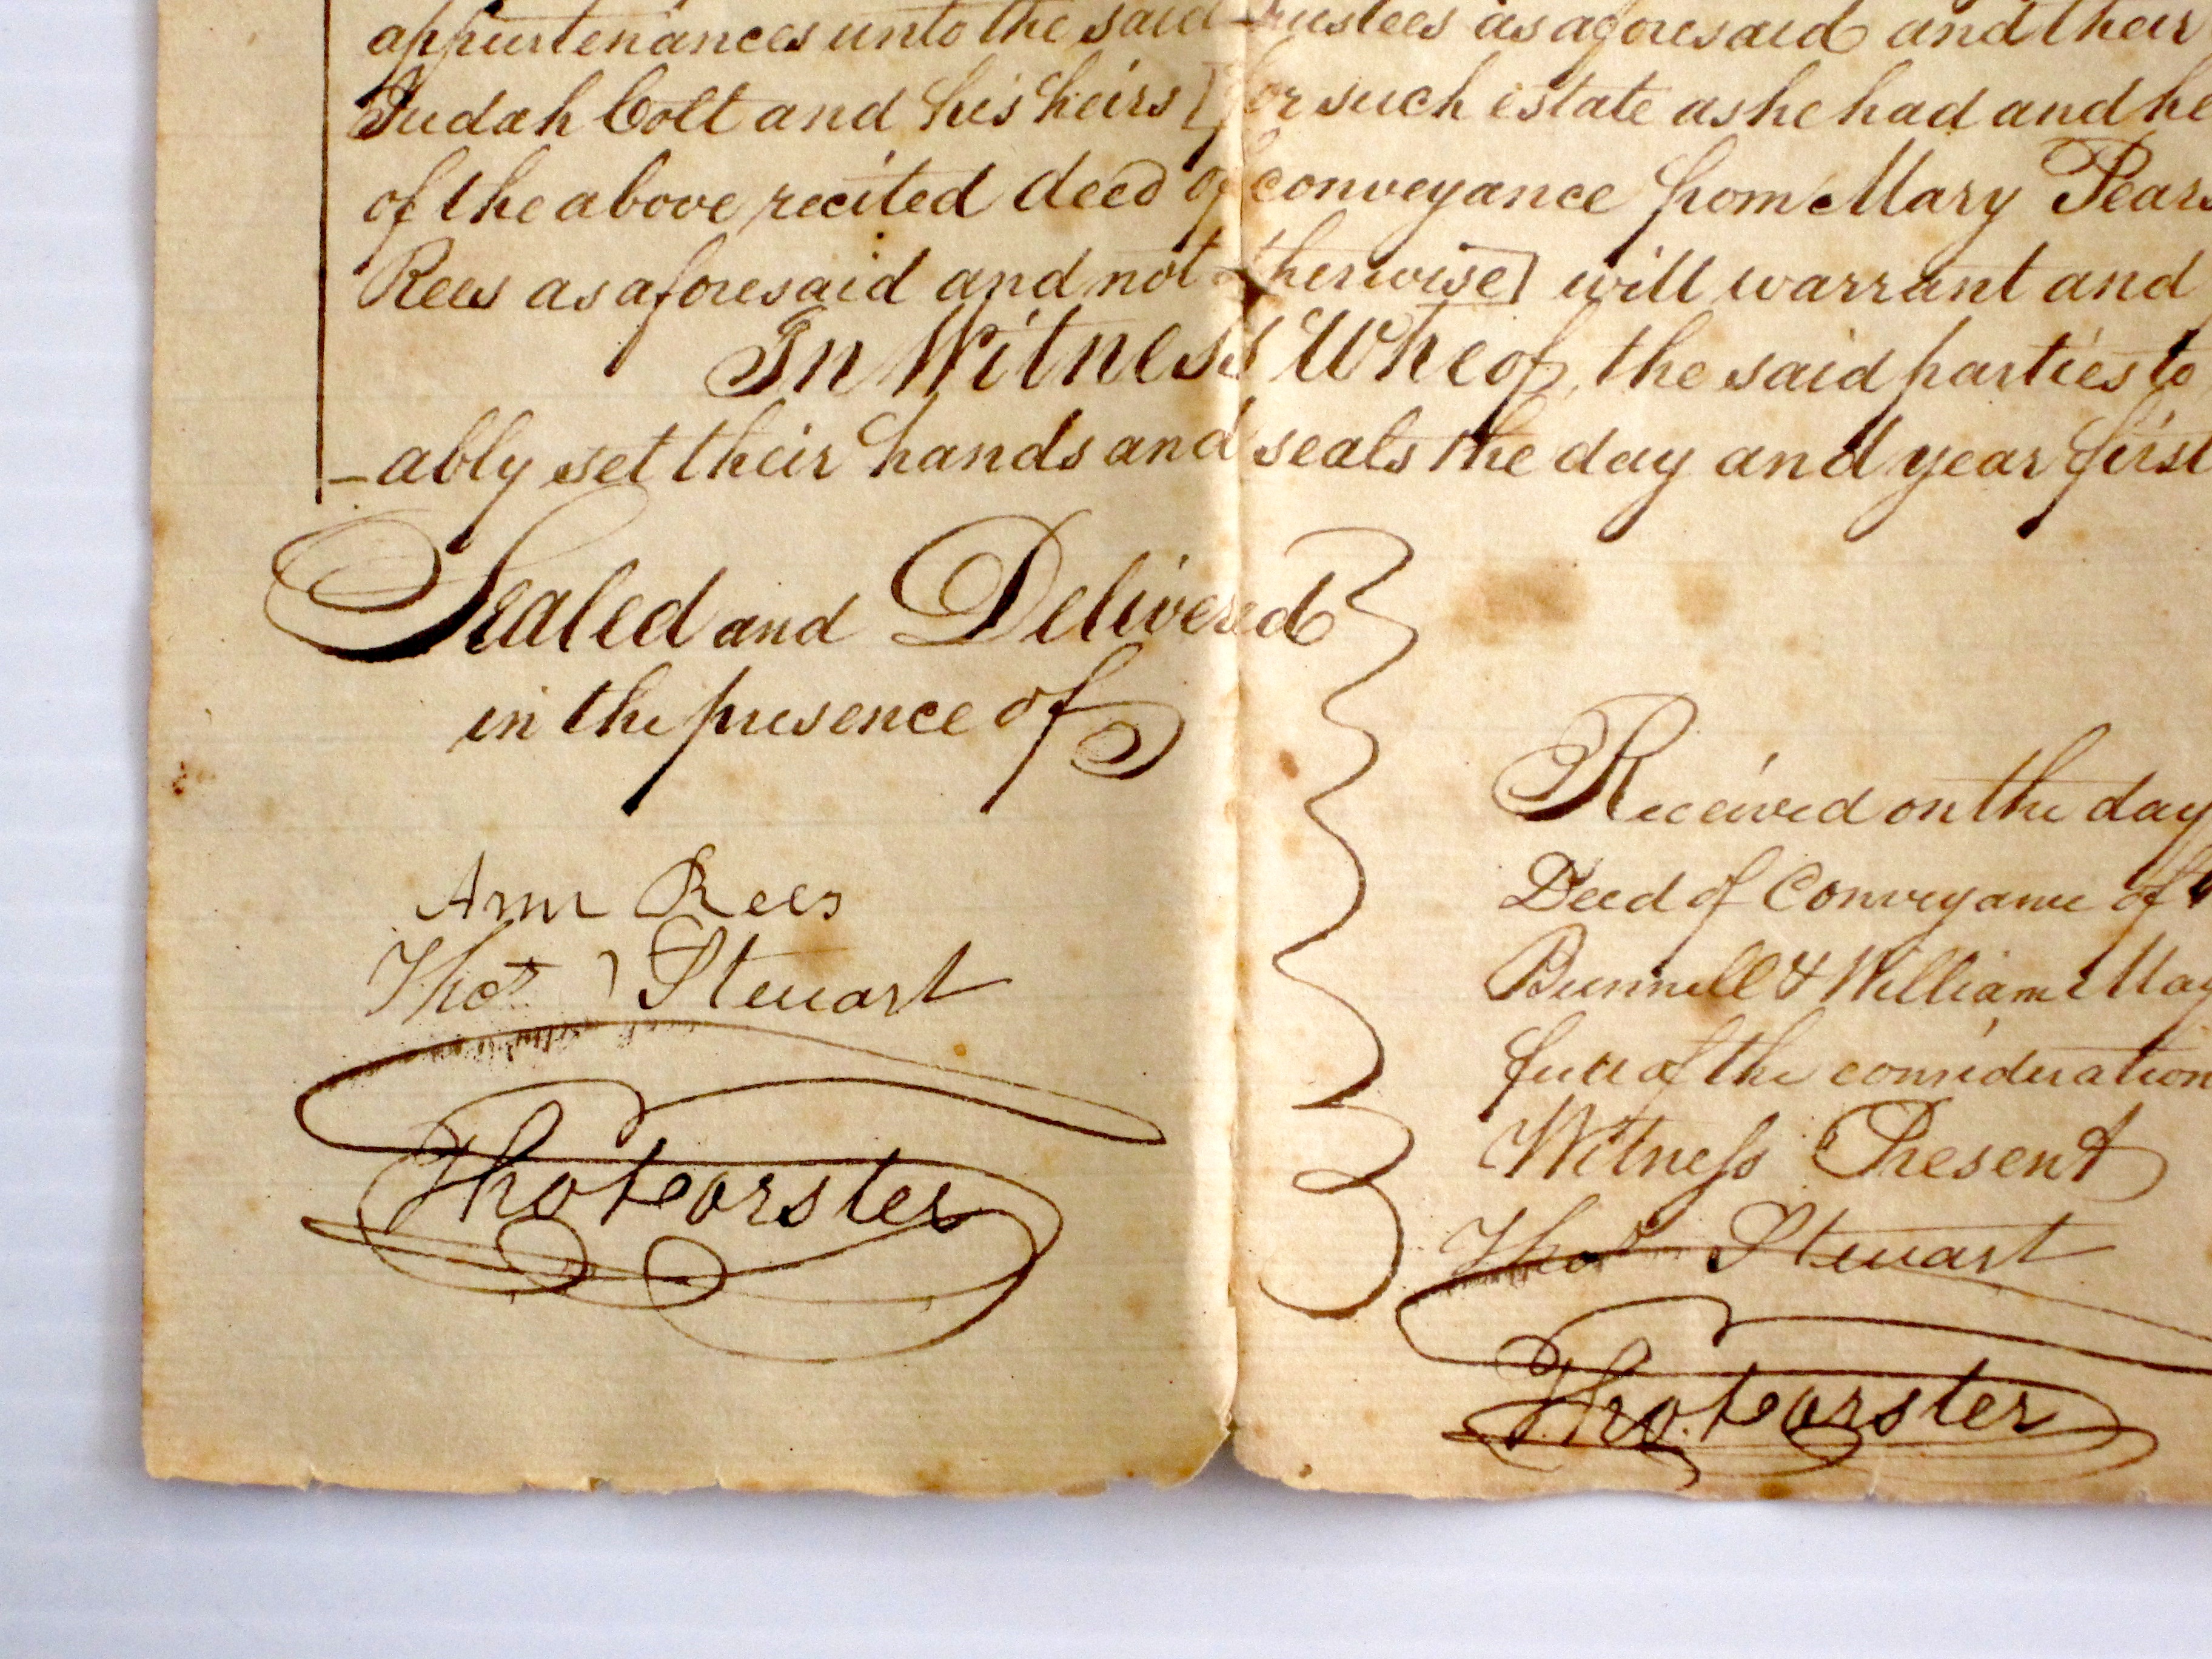 appurtenances unto the said Trustees as aforesaid and their
Judah Colt and his heirs [for such estate as he had and he
of the above recited deed of conveyance from Mary Pears
Rees as aforesaid and not otherwise] will warrant and
In Witness Wheof, the said parties to
-ably set their hands and seals the day and year first
Sealed and Delivered
in the presence of
Ann Rees
Thos Steuart
Tho Forster
Received on the day
Deed of Conveyance of
Bunnell & William May
full of the consideration
Witness Present
Thos Steuart
Tho. Forster